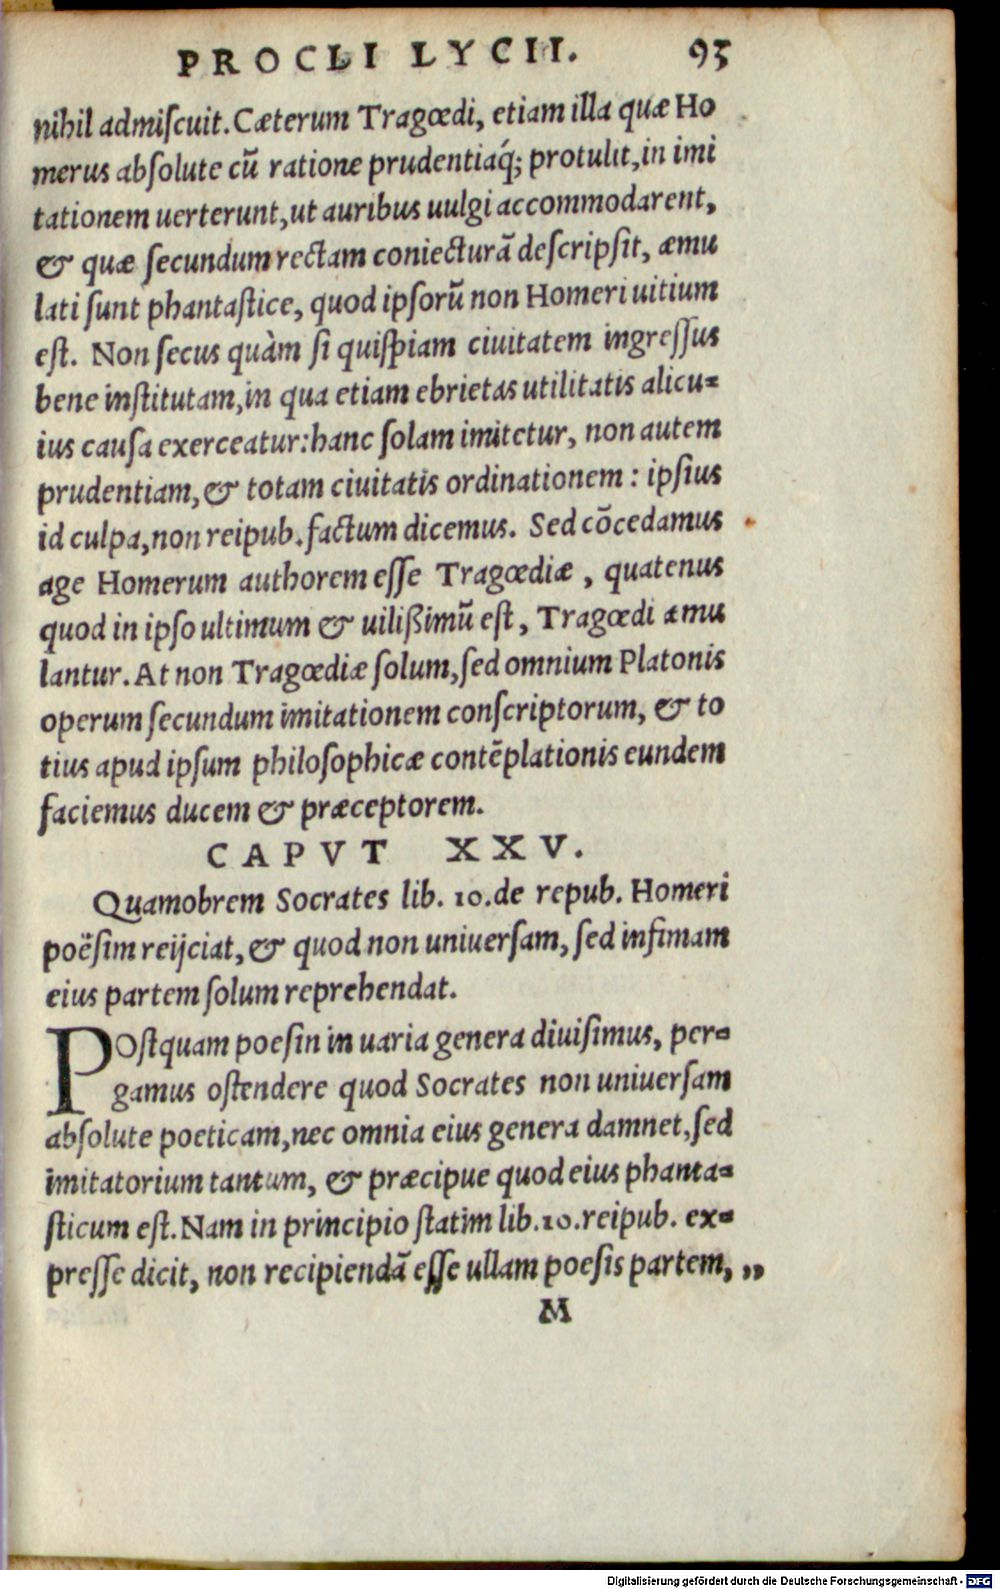 PROCLI LYCII. 95
nihil admiſcuit. Cæterum Tragœdi, etiam illa quæ Ho
merus abſolute cū ratione prudentiaq́; protulit, in imi
tationem uerterunt, ut auribus uulgi accommodarent,
& quæ ſecundum rectam coniecturā deſcripſit, æmu
lati ſunt phantaſtice, quod ipſorū non Homeri uitium
eſt. Non ſecus quàm ſi quiſpiam ciuitatem ingreſſus
bene inſtitutam, in qua etiam ebrietas utilitatis alicu-
ius cauſa exerceatur: hanc ſolam imitetur, non autem
prudentiam, & totam ciuitatis ordinationem: ipſius
id culpa, non reipub. factum dicemus. Sed cōcedamus
age Homerum authorem eſſe Tragœdiæ, quatenus
quod in ipſo ultimum & uilißimū eſt, Tragœdi æmu
lantur. At non Tragœdiæ ſolum, ſed omnium Platonis
operum ſecundum imitationem conſcriptorum, & to
tius apud ipſum philoſophicæ contēplationis eundem
faciemus ducem & præceptorem.
CAPVT XXV.
Quamobrem Socrates lib. 10. de repub. Homeri
poëſim reijciat, & quod non uniuerſam, ſed infimam
eius partem ſolum reprehendat.
POſtquam poeſin in uaria genera diuiſimus, per-
gamus oſtendere quod Socrates non uniuerſam
abſolute poeticam, nec omnia eius genera damnet, ſed
imitatorium tantum, & præcipue quod eius phanta-
ſticum eſt. Nam in principio ſtatim lib. 10. reipub. ex-
preſſe dicit, non recipiendā eſſe ullam poeſis partem, „
M
Digitalisierung gefördert durch die Deutsche Forschungsgemeinschaft - DFG